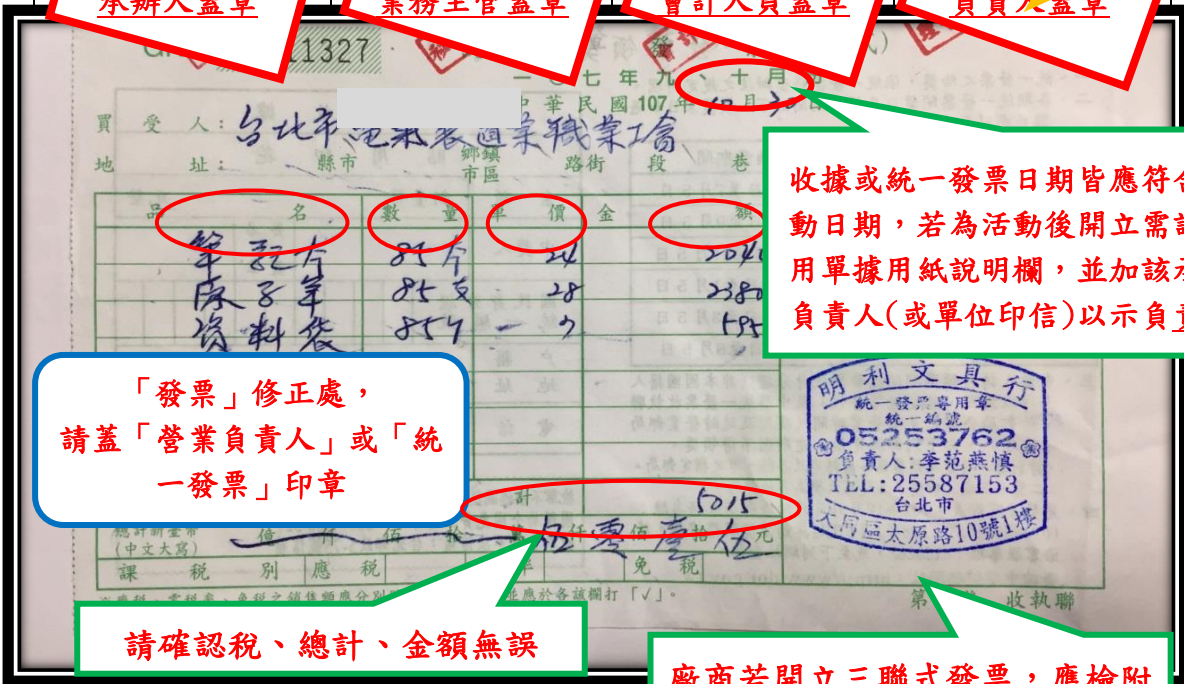 承辦人蓋章
業務主管蓋章
會計人員蓋章
負責人蓋章
1327
一〇七年九、十月
中華民國107年10月30日
買受人:台北市電氣裝置業職業工會
地址: 縣市 鄉鎮市區 路街 段 巷
品名 數量 單價 金額
筆記本 85本 24 2040
原子筆 85支 28 2380
資料袋 85個 7 595
收據或統一發票日期皆應符合
動日期,若為活動後開立需
用單據用紙說明欄,並加該
負責人(或單位印信)以示負責
「發票」修正處,
請蓋「營業負責人」或「統
一發票」印章
明利文具行
統一發票專用章
統一編號
05253762
負責人:李范燕慎
TEL:25587153
台北市
大同區太原路10號1樓
計 5015
總計新臺幣
(中文大寫)
億 仟 佰 拾 萬 伍仟零佰壹拾伍元
課稅別 應稅 免稅
並應於各該欄打「V」。
收執聯
請確認稅、總計、金額無誤
廠商若開立三聯式發票,應檢附